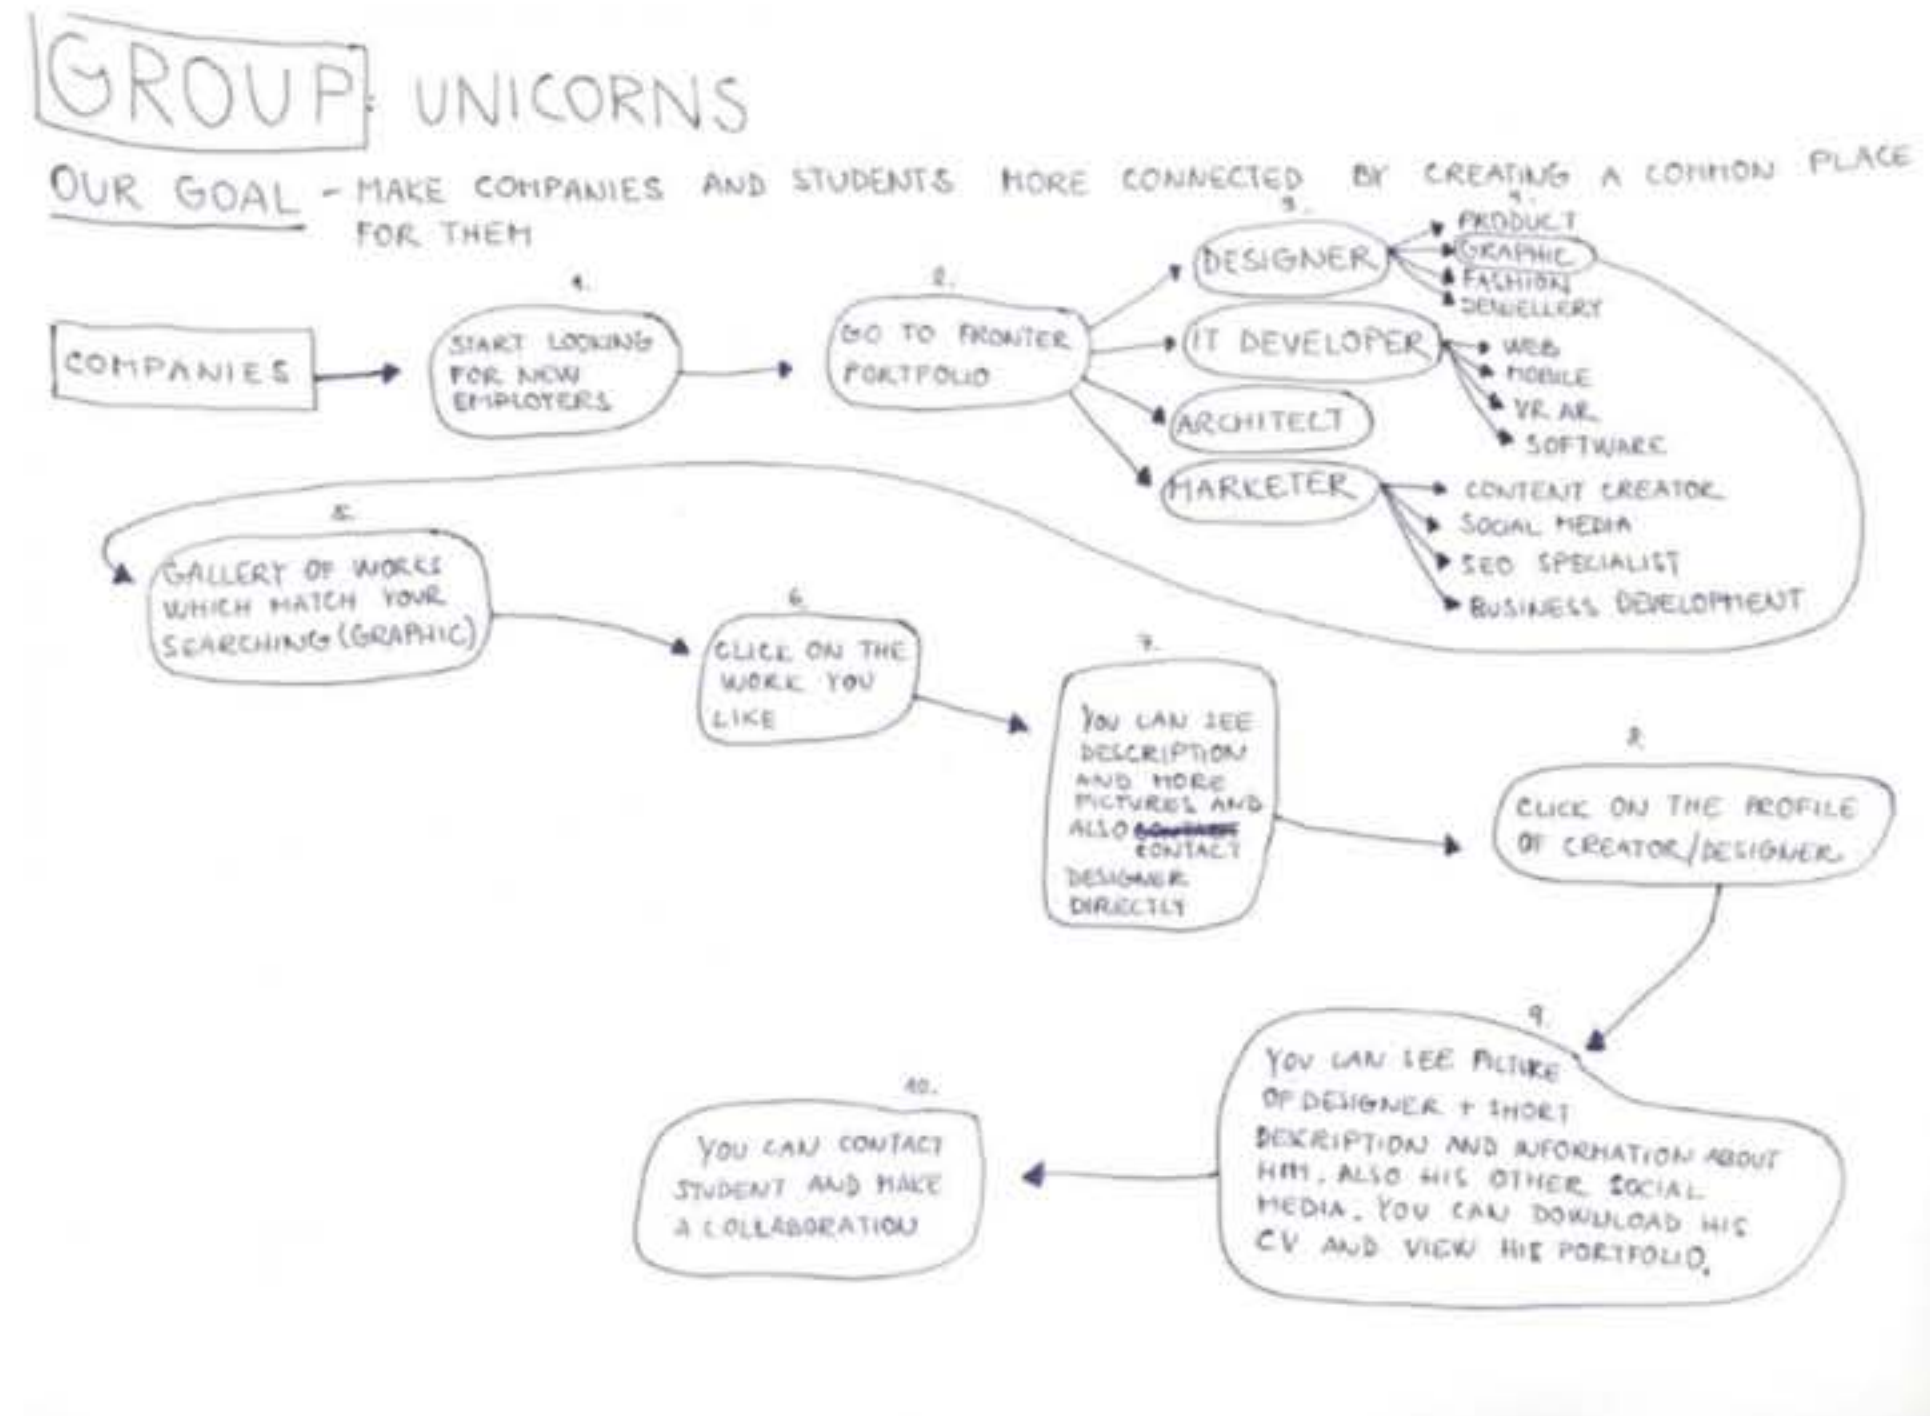 GROUP: UNICORNS
OUR GOAL - MAKE COMPANIES AND STUDENTS MORE CONNECTED BY CREATING A COMMON PLACE
FOR THEM
COMPANIES
1.
START LOOKING
FOR NEW
EMPLOYERS
2.
GO TO FRONTER
PORTFOLIO
3.
DESIGNER
4.
PRODUCT
GRAPHIC
FASHION
JEWELLERY
IT DEVELOPER
WEB
MOBILE
VR AR
SOFTWARE
ARCHITECT
MARKETER
CONTENT CREATOR
SOCIAL MEDIA
SEO SPECIALIST
BUSINESS DEVELOPMENT
5.
GALLERY OF WORKS
WHICH MATCH YOUR
SEARCHING (GRAPHIC)
6.
CLICK ON THE
WORK YOU
LIKE
7.
YOU CAN SEE
DESCRIPTION
AND MORE
PICTURES AND
ALSO
CONTACT
DESIGNER
DIRECTLY
8.
CLICK ON THE PROFILE
OF CREATOR/DESIGNER
9.
YOU CAN SEE PICTURE
OF DESIGNER + SHORT
DESCRIPTION AND INFORMATION ABOUT
HIM. ALSO HIS OTHER SOCIAL
MEDIA. YOU CAN DOWNLOAD HIS
CV AND VIEW HIS PORTFOLIO.
10.
YOU CAN CONTACT
STUDENT AND MAKE
A COLLABORATION